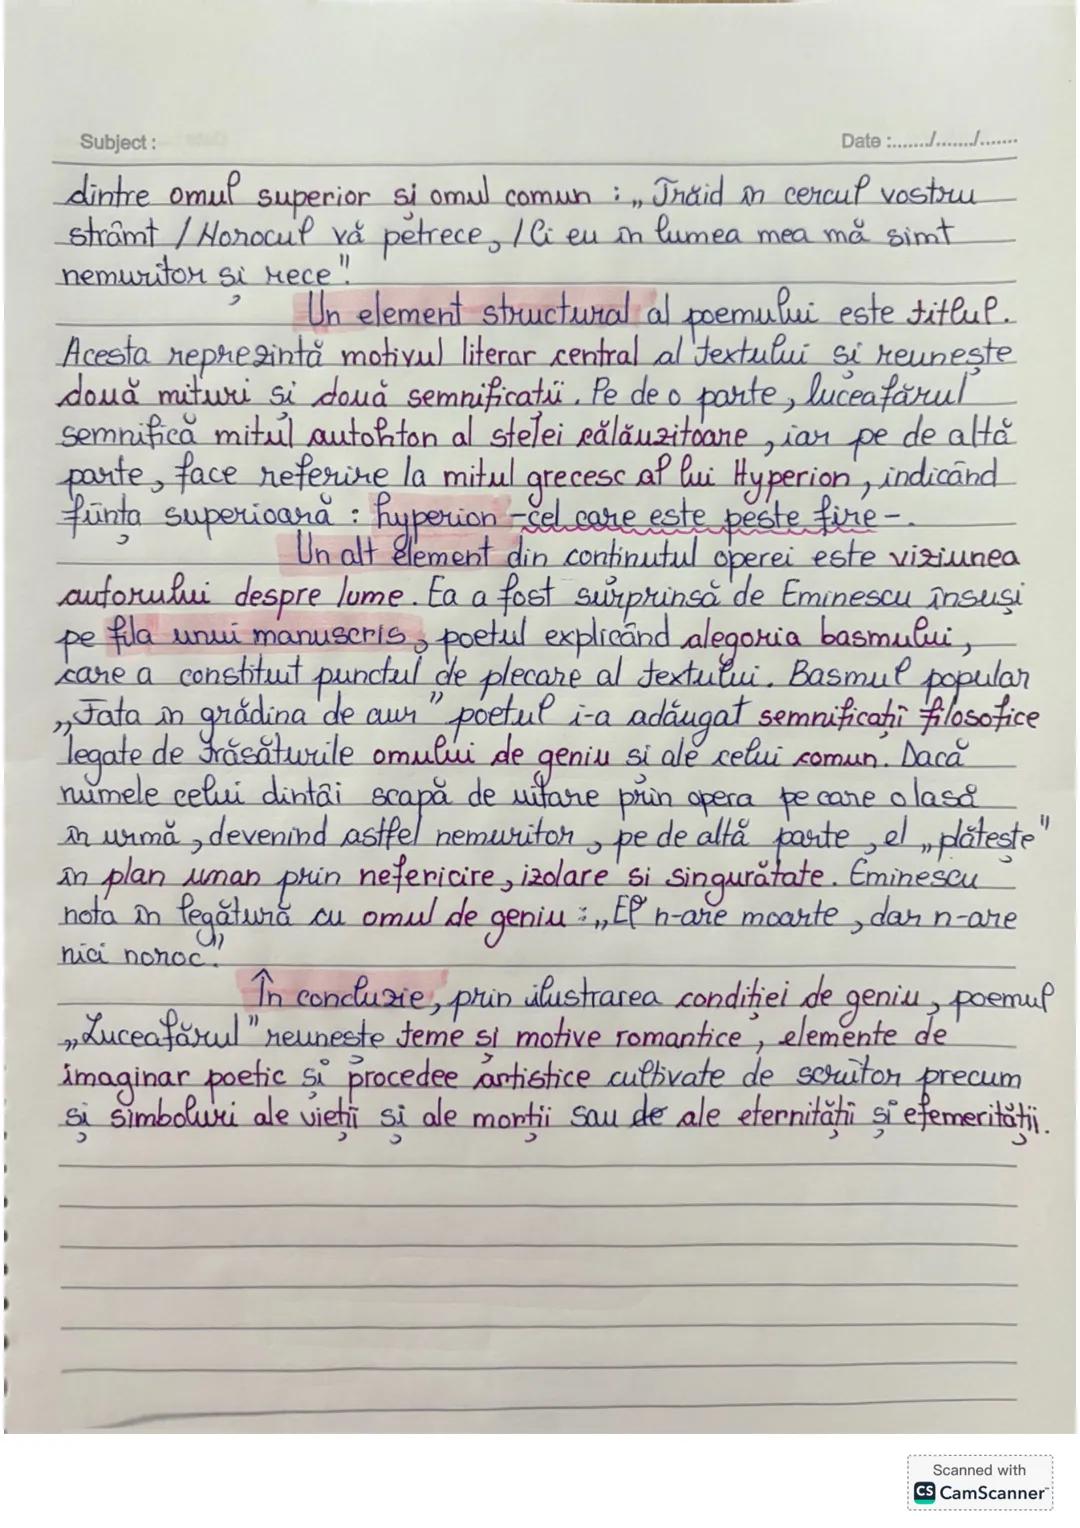 Subject :
Date :......./......./.......
dintre omul superior și omul comun : „Trăid în cercul vostru
strâmt / Norocul vă petrece, / Ci eu în lumea mea mă simt
nemuritor și rece".
Un element structural al poemului este titlul.
Acesta reprezintă motivul literar central al textului și reunește
două mituri și două semnificatii. Pe de o parte, luceafărul
semnifică mitul autohton al stelei călăuzitoare, iar pe de altă
parte, face referire la mitul grecesc al lui Hyperion, indicând
ființa superioară : hyperion -cel care este peste fire-.
Un alt element din continutul operei este viziunea
autorului despre lume. Ea a fost surprinsă de Eminescu însuși
pe fila unui manuscris, poetul explicând alegoria basmului,
care a constituit punctul de plecare al textului. Basmul popular
„Fata în grădina de aur" poetul i-a adăugat semnificații filosofice
legate de trăsăturile omului de geniu si ale celui comun. Dacă
numele celui dintâi scapă de uitare prin opera pe care o lasă
în urmă, devenind astfel nemuritor, pe de altă parte, el „plătește"
în plan uman prin nefericire, izolare si singurătate. Eminescu
nota în legătură cu omul de geniu : „El n-are moarte, dar n-are
nici noroc".
În concluzie, prin ilustrarea condiției de geniu, poemul
„Luceafărul" reunește teme și motive romantice, elemente de
imaginar poetic și procedee artistice cultivate de scriitor precum
și simboluri ale vieții și ale morții sau de ale eternității și efemerității.
Scanned with
CS CamScanner